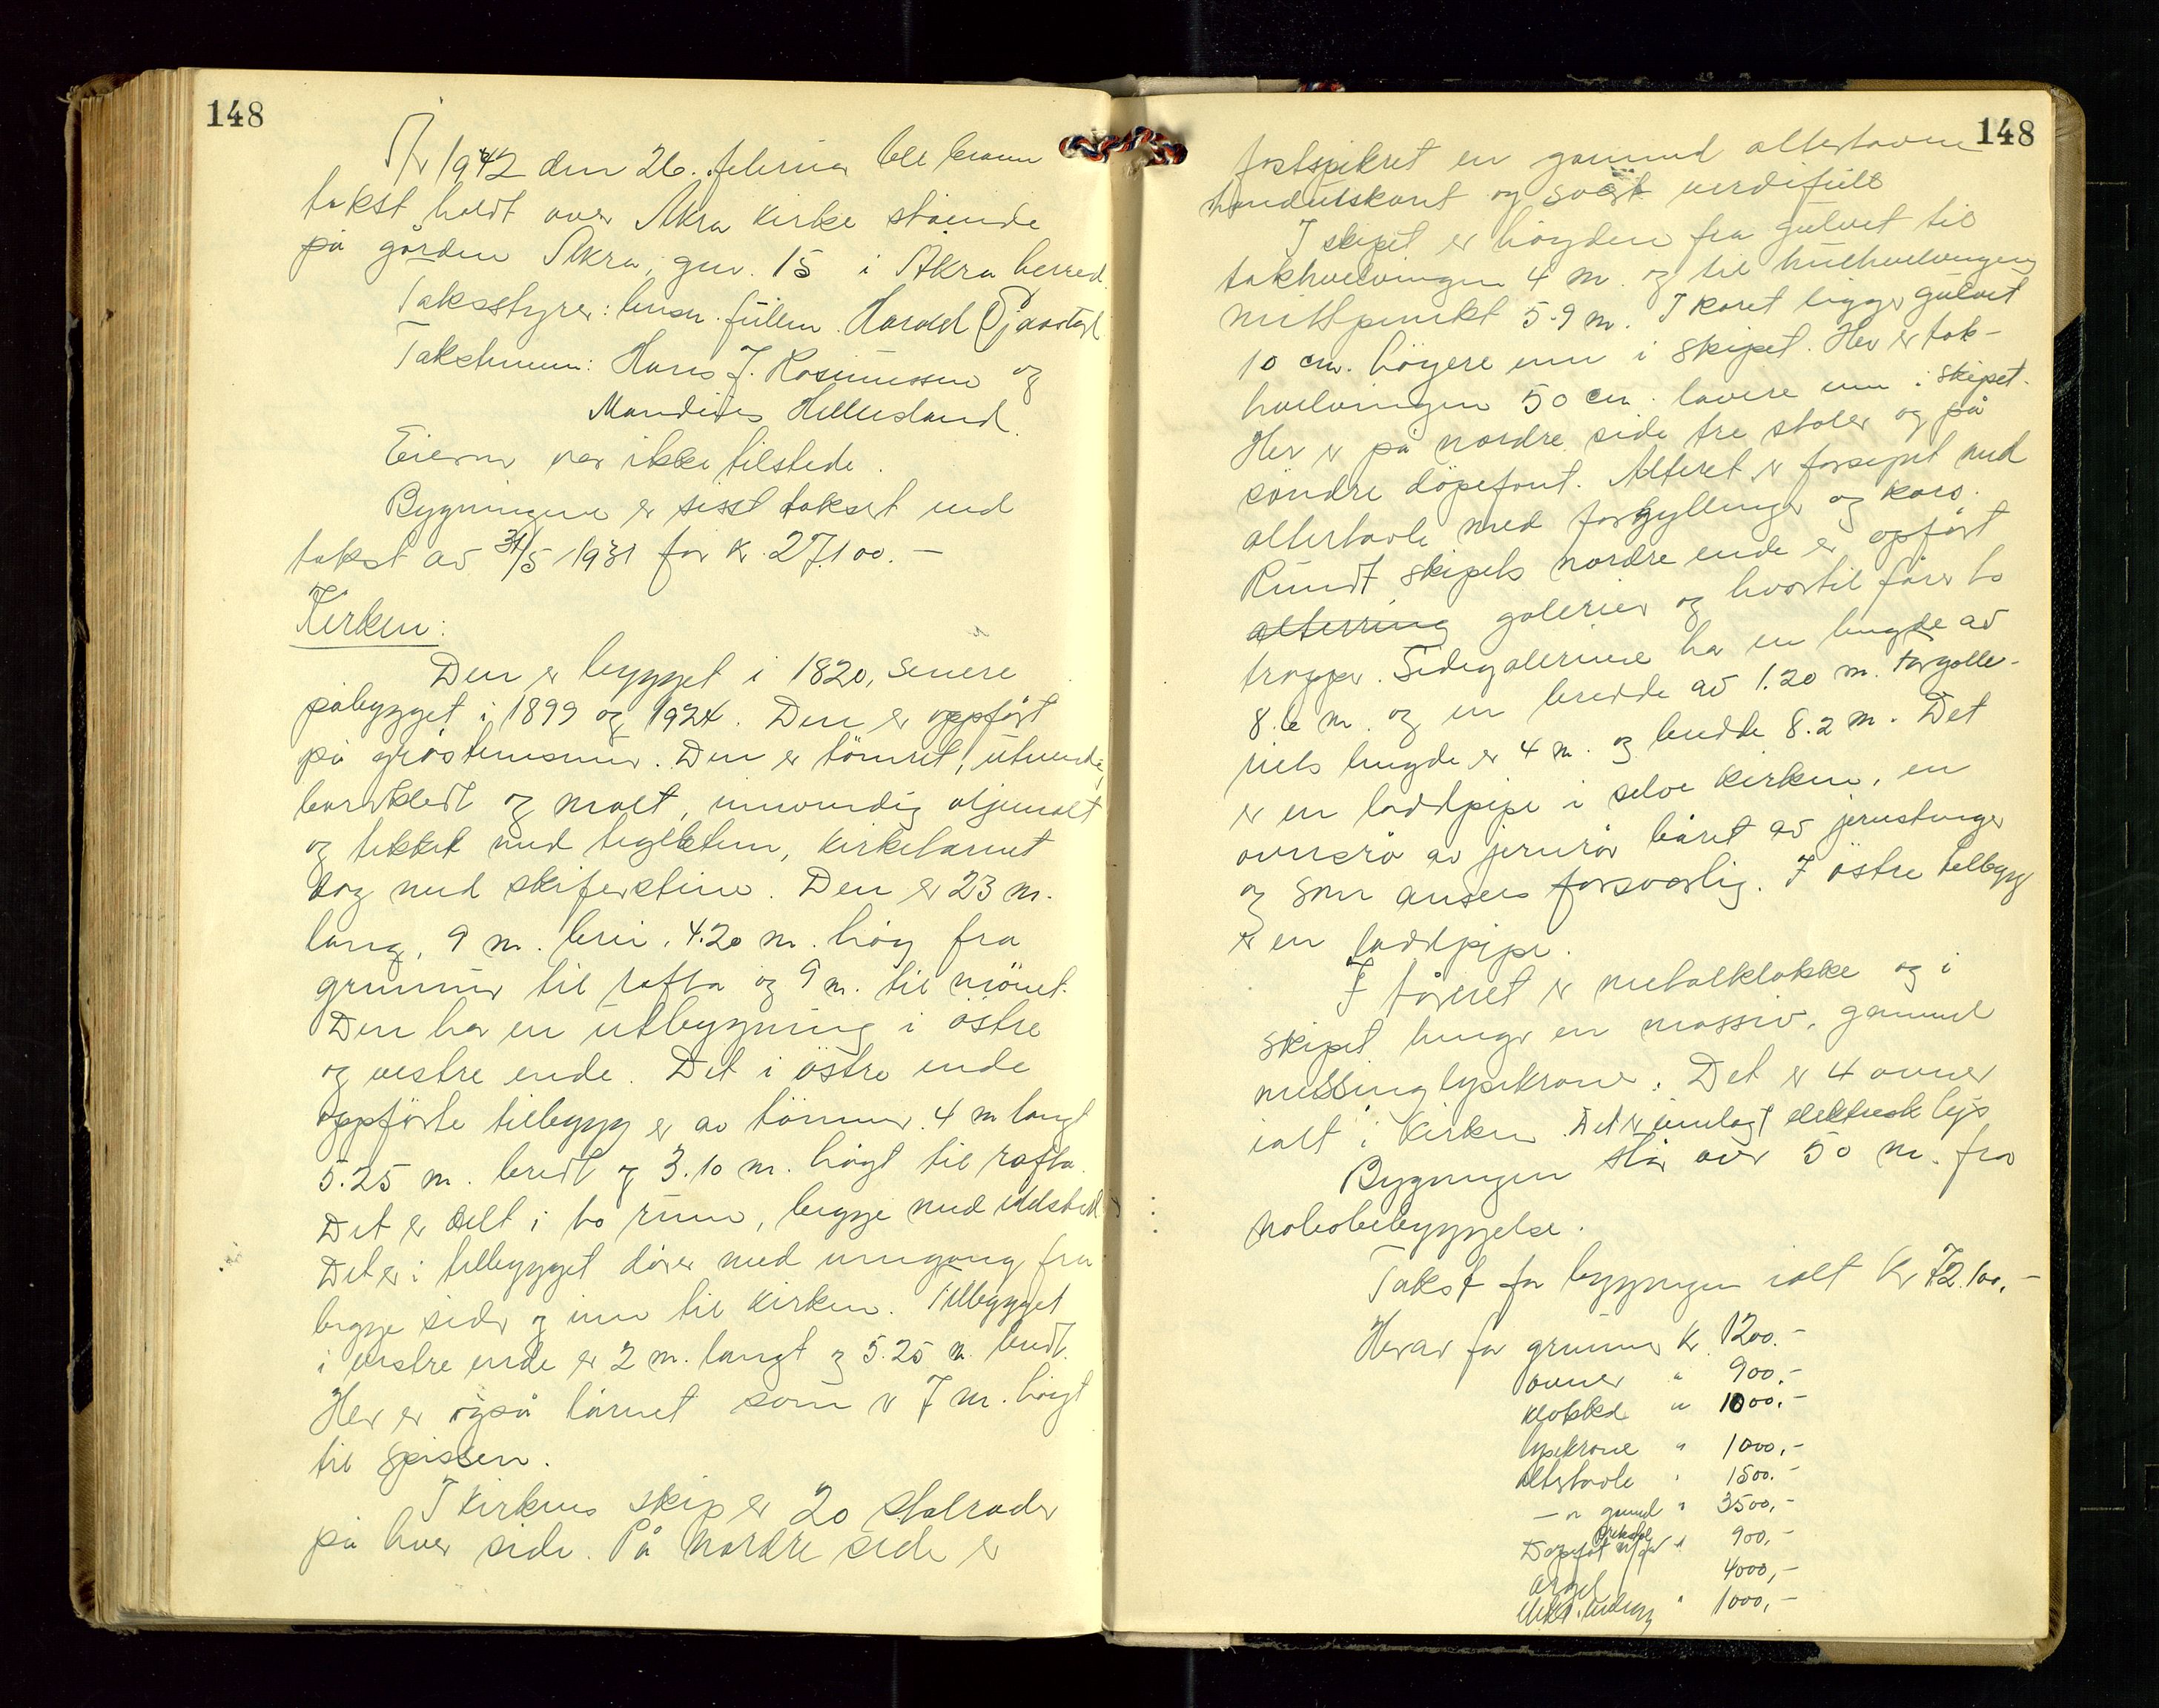 148
År 1942 den 26. februar ble brann
takst holdt over Åkra kirke stående
på gården Åkra, gnr. 15 i Åkra herred.
Takststyrer: lensm. fullm. Harald
Takstmenn: Hans J. Rasmussen og
Mandius Hillesland.
Eieren var ikke tilstede.
Bygningene er sisst taksert ved
takst av 31/5 1931 for kr. 27.100.-
Kirken:
Den er bygget i 1820, senere
påbygget i 1899 og 1924. Den er oppført
på gråstensmur. Den er tömret, utvendig
bordkledt og malt, innvendig oljemalt
og tekket med teglsten, kirketårnet
dog med skifersten. Den er 23 m.
lang, 9 m. brei, 4.20 m. höy fra
grunnmur til rafta og 9 m. til mönet.
Den har en utbygning i östre
og vestre ende. Det i östre ende
oppförte tilbygg er av tömmer. 4 m langt
5.25 m. bredt og 3.10 m. höyt til rafta.
Det er delt i to rum, begge med ildsted
Det er i tilbygget dörer med inngang fra
begge sider og inn til kirken. Tilbygget
i vestre ende er 2 m. langt og 5.25 m. bredt.
Her er også tårnet som er 7 m. höyt
til spissen.
I kirkens skip er 20 stolrader
på hver side. På nordre side er
148
fastspikret en gammel altertavle
håndutskåret og svært verdifull
I skipet er höyden fra gulvet til
takhvelvingen 4 m. og til hvelvingens
mittpunkt 5.9 m. I koret ligger gulvet
10 cm. höyere enn i skipet. Her er tak-
hvelvingen 50 cm. lavere enn i skipet.
Her er på nordre side tre stoler og på
söndre döpefont. Alteret er forsynt med
altertavle med forgyllinger og kors.
Rundt skipets nordre ende er opfört
alterring galerier og hvortil förer to
trapper. Sidegaleriene har en lengde av
8.6 m. og en bredde av 1.20 m. Orgelle-
riets lengde er 4 m. og bredde 8.2 m. Det
er en loddpipe i selve kirken, en
ovnsrö av jernrör båret av jernstenger
og som ansees forsvarlig. I östre tilbygg
er en loddpipe.
I tårnet er metalklokke og i
skipet henger en massiv, gammel
messinglysekrone. Det er 4 ovner
ialt i kirken. Det er innlagt elektrisk lys
Bygningen står over 50 m. fra
nabobebyggelse.
Takst for bygningen ialt kr. 72.100,-
Herav for grunnmur kr. 1200.-
ovner " 900.-
klokke " 1000.-
lysekrone " 1000,-
Altertavle " 1500.-
-"- gammel " 3500,-
Döpefont " 900,-
orgel 4000,-
elekt. anlegg " 1000,-